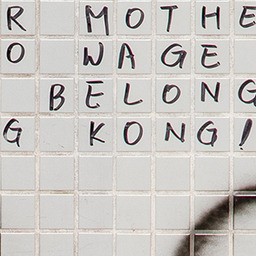 R MOTHE
O WAGE
BELONG
G KONG!